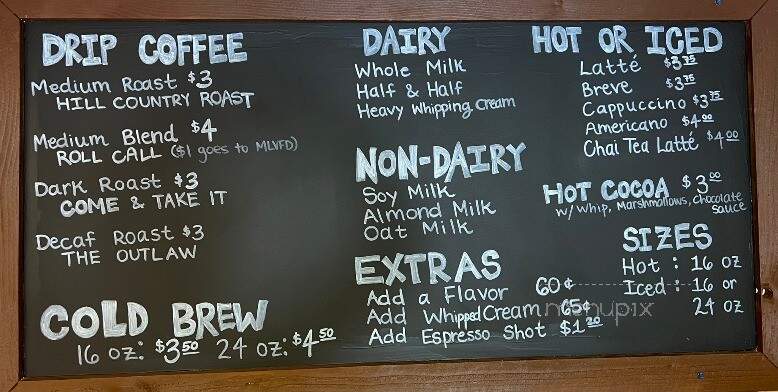 DRIP COFFEE
Medium Roast $3
HILL COUNTRY ROAST
Medium Blend $4
ROLL CALL ($1 goes to MLVFD)
Dark Roast $3
COME & TAKE IT
Decaf Roast $3
THE OUTLAW
COLD BREW
16 oz: $3.50 24 oz: $4.50
DAIRY
Whole Milk
Half & Half
Heavy Whipping Cream
NON-DAIRY
Soy Milk
Almond Milk
Oat Milk
EXTRAS
Add a Flavor 60¢
Add Whipped Cream 65¢
Add Espresso Shot $1.20
HOT OR ICED
Latté $3.75
Breve $3.75
Cappuccino $3.75
Americano $4.00
Chai Tea Latté $4.00
HOT COCOA $3.00
w/ Whip, Marshmallows, Chocolate
sauce
SIZES
Hot : 16 oz
Iced : 16 or
24 oz
menupix